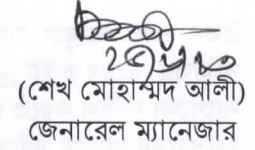 (শেখ মোহাম্মদ আলী)
জেনারেল ম্যানেজার